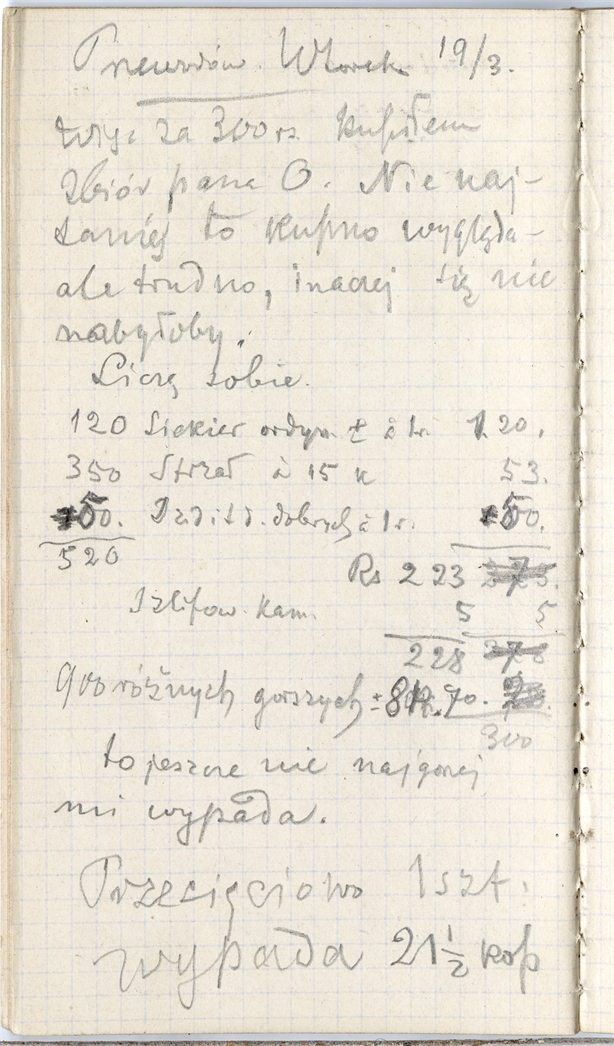 Wtorek 19/3.
Więc za 300 rs kupiłem
zbiór pana O. Nie naj-
taniéj to kupno wygląda-
ale trudno, inaczej się nie
nabyłoby.
Liczę sobie.
120 Siekier ordyn. à 1 r. 120.
350 Strzał à 15 k 53.
50. dobrych à 1 r. 50.
520
Rs 223
Szlifow. Kam. 5 5
228
900 różnych gorszych 8 k. 70.
300
to jeszcze nie najgorzej
mi wypada.
Przecięciowo 1 szt.
wypada 21 1/2 kop